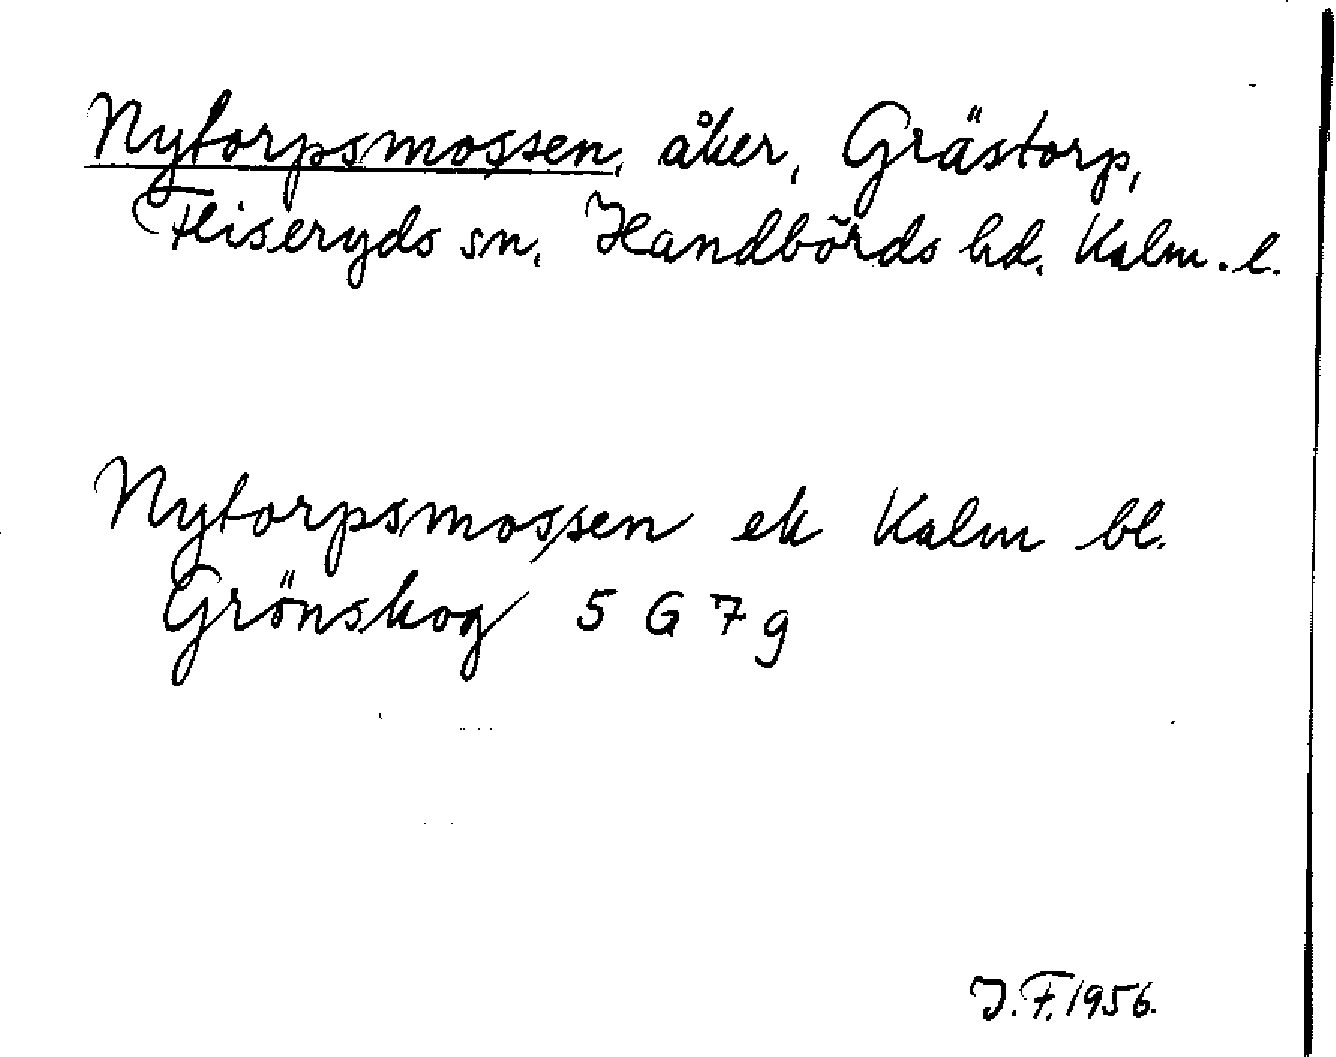 Nytorpsmossen, åker, Grästorp,
Fliseryds sn. Handbörds hd. Kalm. l.
Nytorpsmossen ek Kalm bl.
Grönskog 5 G 7 g
J. F. 1956.